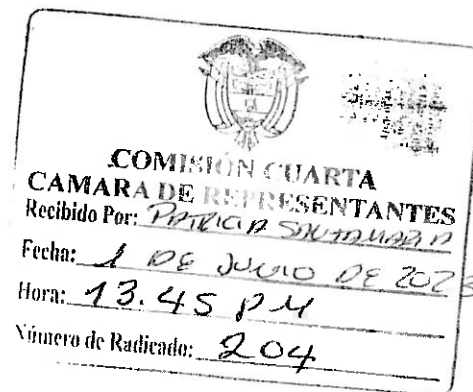 COMISIÓN CUARTA
CAMARA DE REPRESENTANTES
Recibido Por: PATRICIA SANTAMARIA
Fecha: 1 DE JULIO DE 202
Hora: 13.45 PM
Número de Radicado: 204